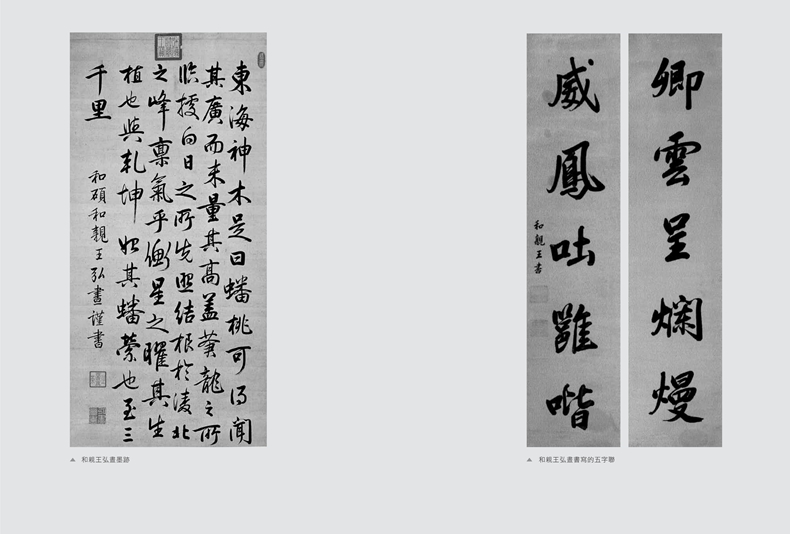 東海神木是曰蟠桃可得聞
其廣而未量其高蓋龍之所
臨向日之所先照結根於淩北
之峰稟氣乎衡星之曜其生
植也與乾坤始其蟠縈也至三
千里
和碩和親王弘晝謹書
▲ 和親王弘晝墨跡
卿雲呈爛熳
威鳳吐雝喈
和親王書
▲ 和親王弘晝書寫的五字聯